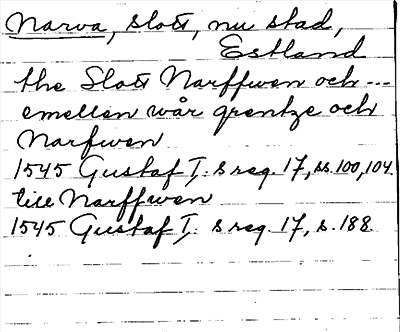 Narva, slott, nu stad,
Estland
the Slott Narffwen och ---
emellan wår grentze och
Narfwen
1545 Gustaf I:s reg. 17, ss. 100, 104.
till Narffwen
1545 Gustaf I:s reg. 17, s. 188.